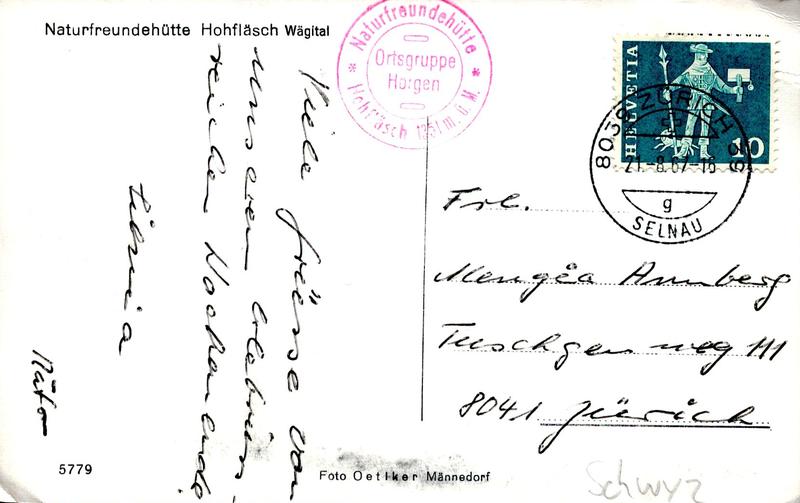 Naturfreundehütte Hohfläsch Wägital
Naturfreundehütte
Ortsgruppe
Horgen
* Hohfläsch 1351 m. ü. M. *
HELVETIA
10
8038 ZÜRICH 38
21.-8.67-16
g
SELNAU
Viele Grüsse von
unseren erlebnis
reichen Wochenende
Frl.
Annberg
weg 111
8041 Zürich
5779
Foto Oetiker Männedorf
Schwyz